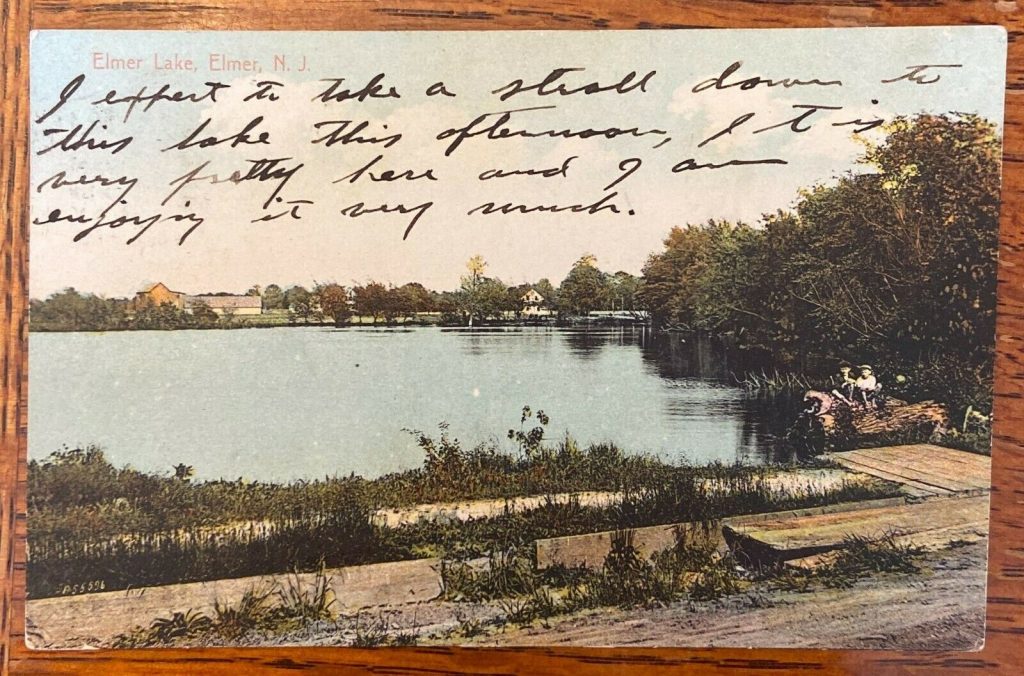 Elmer Lake, Elmer, N. J.
I expect to take a stroll down to
this lake this afternoon, It is
very pretty here and I am
enjoyjng it very much.